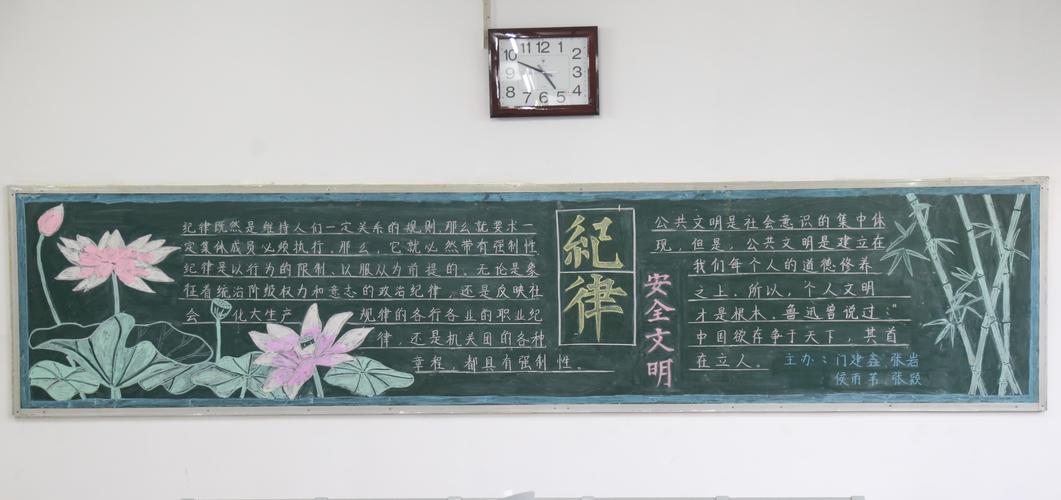 11 12 1
10 2
9 3
8 4
7 6 5
纪律既然是维持人们一定关系的规则,那么就要求一
定集体成员必须执行,那么,它就必然带有强制性
纪律是以行为的限制、以服从为前提的。无论是象
征着统治阶级权力和意志的政治纪律,还是反映社
会化大生产规律的各行各业的职业纪
律,还是机关团的各种
章程,都具有强制性。
纪律
安全文明
公共文明是社会意识的集中体
现,但是,公共文明是建立在
我们每个人的道德修养
之上,所以,个人文明
才是根本,鲁迅曾说过:"
中国欲存争于天下,其首
在立人。
主办:门建鑫 张岩
侯雨 张